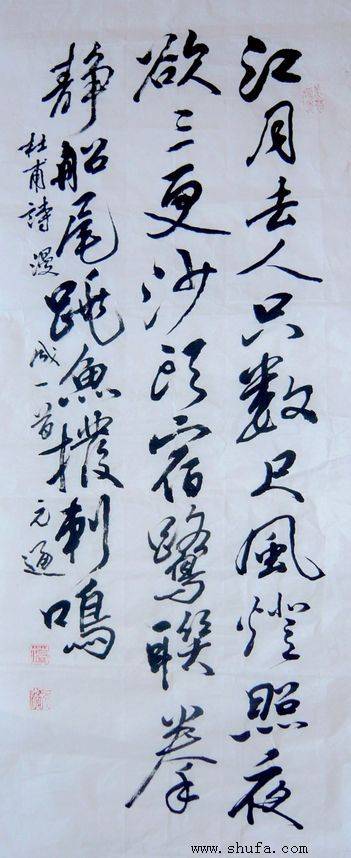 江月去人只數尺風燈照夜
欲三更沙頭宿鷺聯拳
靜船尾跳魚撥刺鳴
杜甫詩漫成一首 元通
www.shufa.com